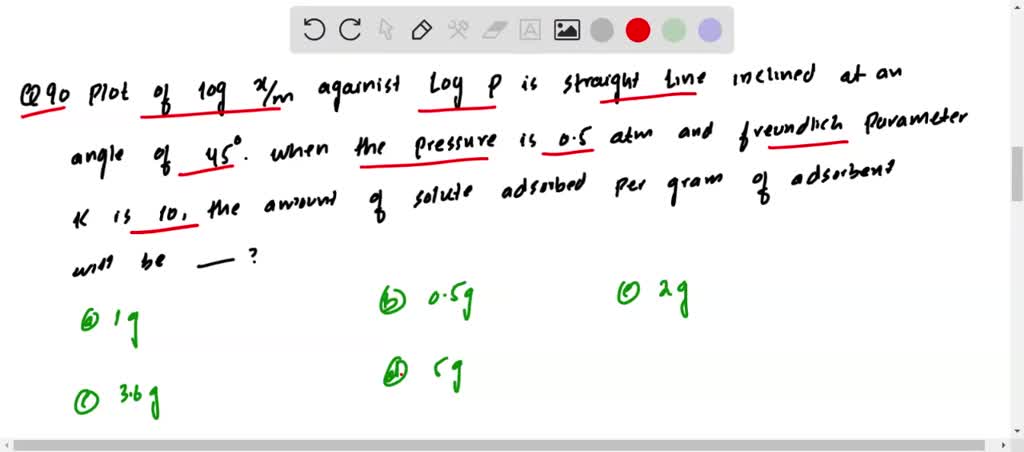 Q90 Plot of log x/m againist Log P is straight Line inclined at an
angle of 45°. when the pressure is 0.5 atm and freundlich Parameter
K is 10, the amount of solute adsorbed per gram of adsorbent
will be — ?
ⓐ 1g ⓑ 0.5g ⓔ 2g
ⓒ 3.6g ⓓ 5g